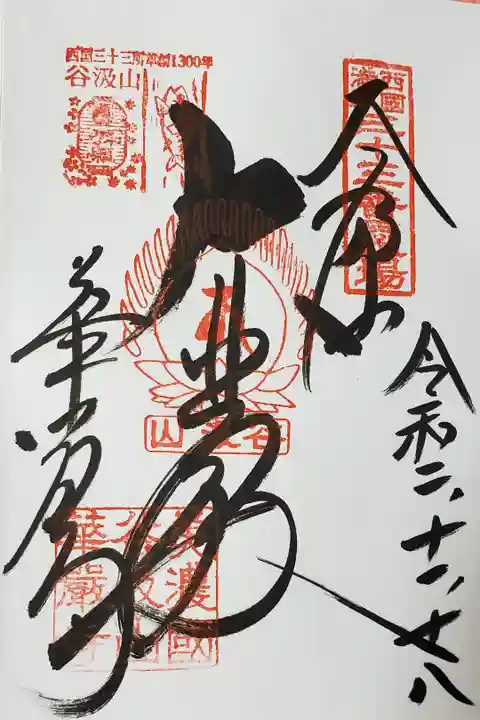 西国三十三所草創1300年
谷汲山
西國
満願
三十三番霊場
奉拝
令和二、十一、廿八
大悲殿
谷汲山
華厳寺
美濃國
谷汲山
華嚴寺